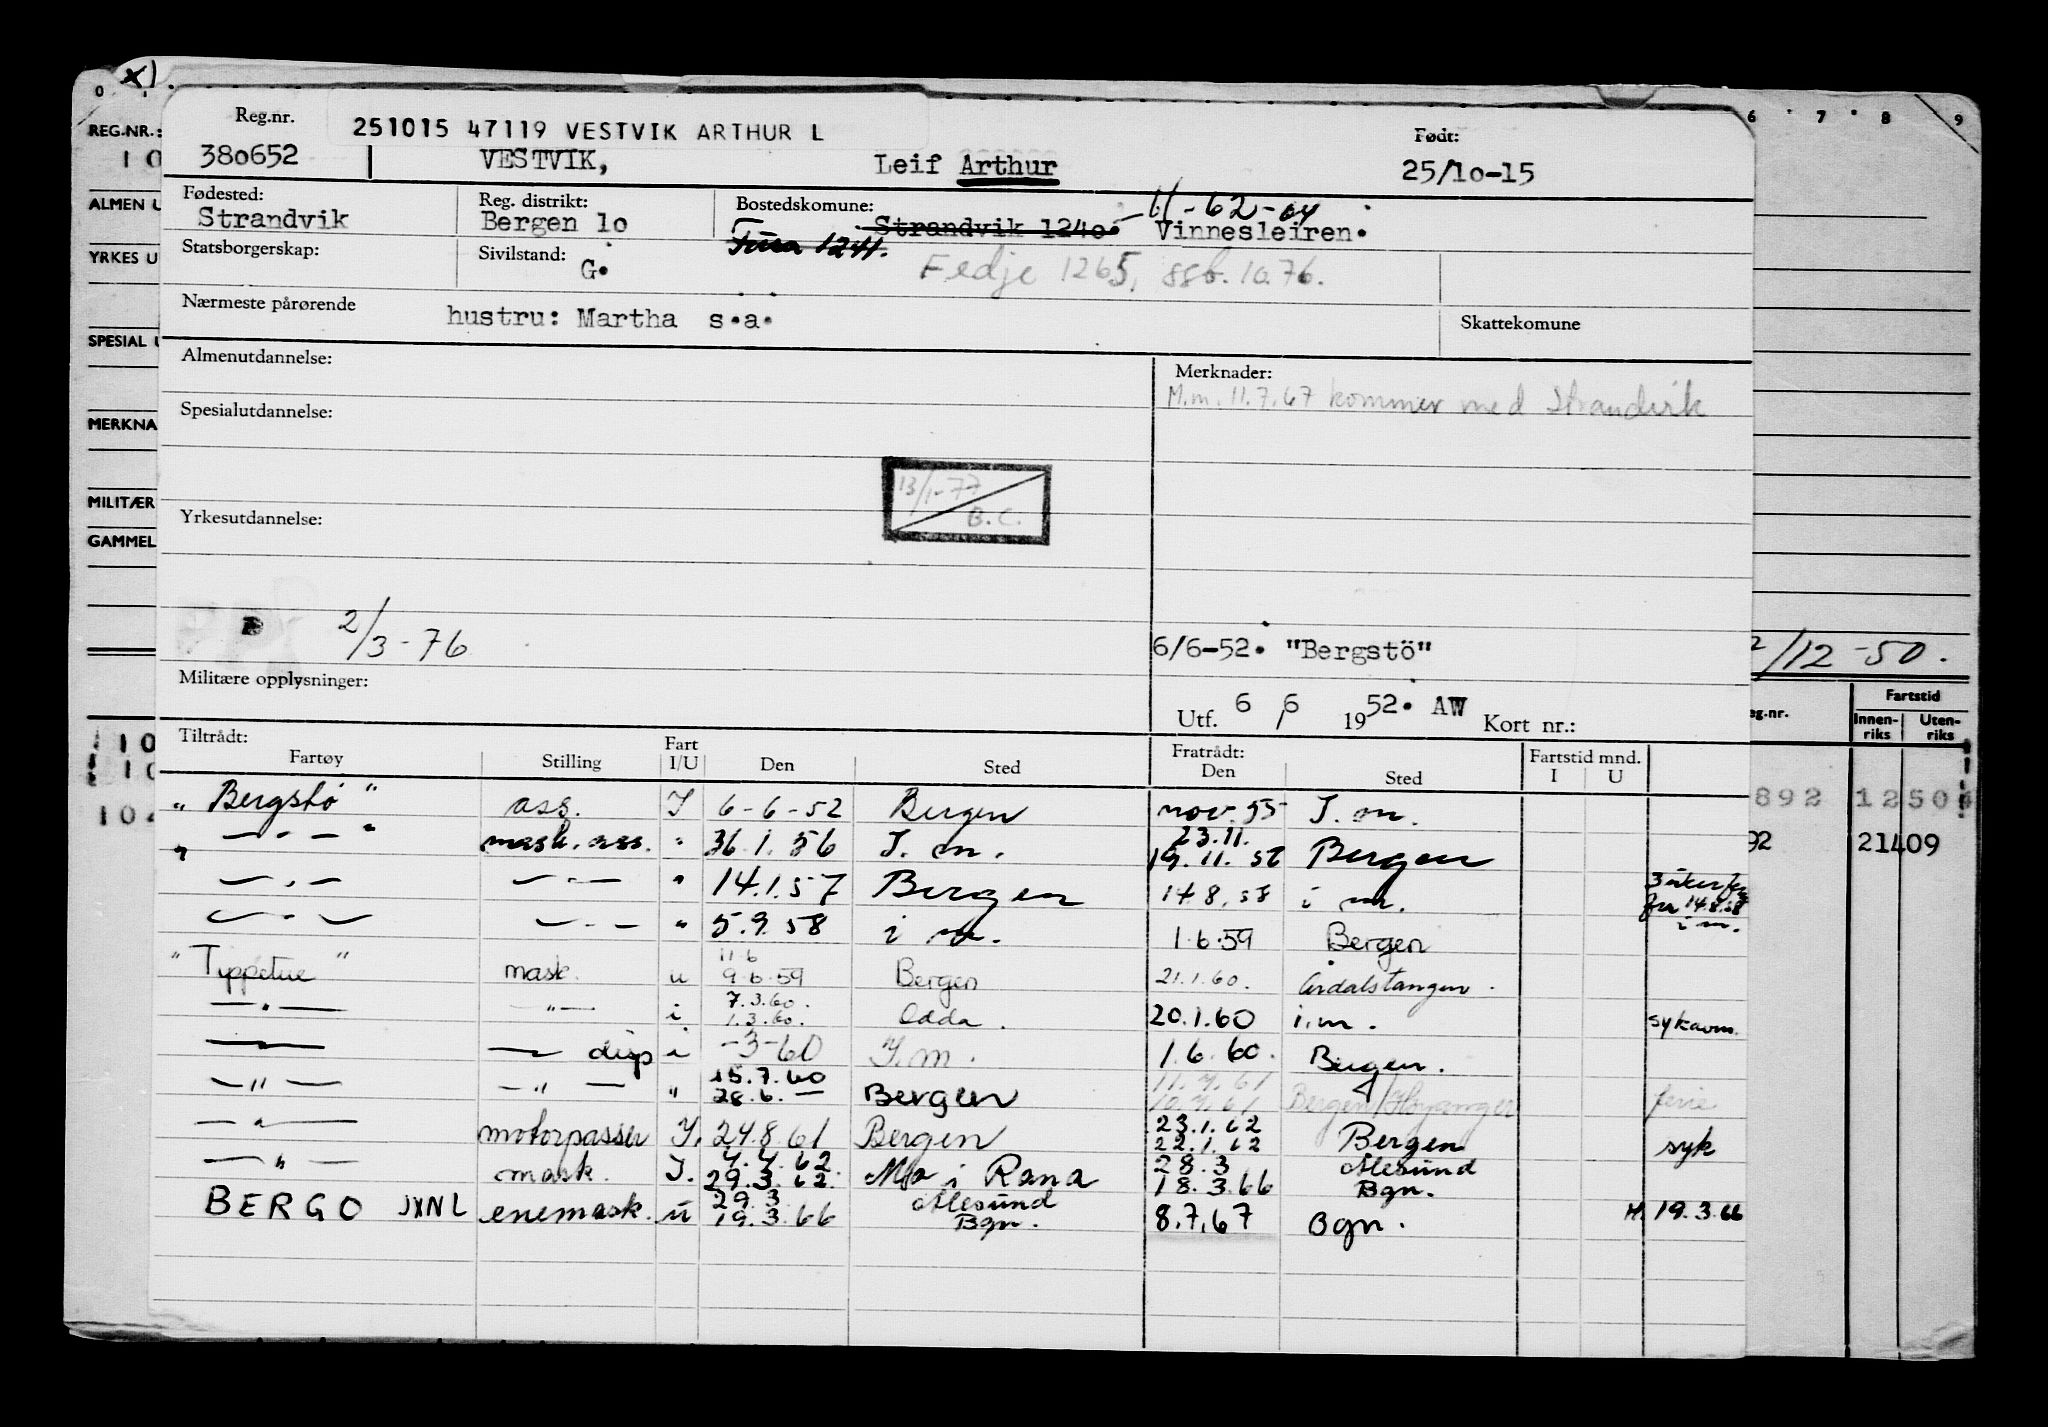 x).
0
6 7 8 9
REG.NR.:
10
Reg.nr. 251015 47119 VESTVIK ARTHUR L Født:
380652 VESTVIK, Leif Arthur 25/10-15
ALMEN U
Fødested: Reg. distrikt: Bostedskomune: 11-62-64
Strandvik Bergen 10 Strandvik 1240. Vinnesleiren.
Fusa 1241.
YRKES U
Statsborgerskap: Sivilstand: G. Fedje 1265, ssb. 10.76.
Nærmeste pårørende hustru: Martha s.a. Skattekomune
SPESIAL U
Almenutdannelse: Merknader:
M.m. 11.7.67 kommer med Strandvik
Spesialutdannelse:
MERKNA
13/1-77
B.C.
MILITÆR
Yrkesutdannelse:
GAMMEL
2/3-76
6/6-52. "Bergstö"
/12-50.
Militære opplysninger:
Utf. 6/6 1952. AW Kort nr.:
eg.nr. Fartstid
Innen-riks Uten-riks
Tiltrådt: Fart Fratrådt: Fartstid mnd.
Fartøy Stilling I/U Den Sted Den Sted I U
"Bergstø" ass. I 6-6-52 Bergen nov. 55 I.m.
892 1250
" — " — " mask. ass. " 36.1.56 I.m. 23.11. 19.11.56 Bergen
92 21409
— " — — " — " 14.1.57 Bergen 14.8.58 i m. 3 uker fra 14.8.58 i m.
— " — — " — " 5.9.58 i m. 1.6.59 Bergen
"Typpetue" mask. u 11.6 9.6.59 Bergen 21.1.60. Årdalstangen.
— " — — " — i 7.3.60. 1.3.60. Odda. 20.1.60 i.m. sykavm.
— — disp i -3-60 I.m. 1.6.60. Bergen.
— " — — " — " 15.7.60 28.6. — Bergen 11.7.61 10.7.61 Bergen/Høyanger ferie
— " — motorpasser I. 24.8.61 Bergen 23.1.62 22.1.62 Bergen syk
— " — mask. I. 4.4.62. 29.3.62. Mo i Rana 28.3 18.3.66 Ålesund Bgn.
BERGO JXNL enemask. u 29.3 19.3.66 Ålesund Bgn. 8.7.67 Bgn. M. 19.3.66